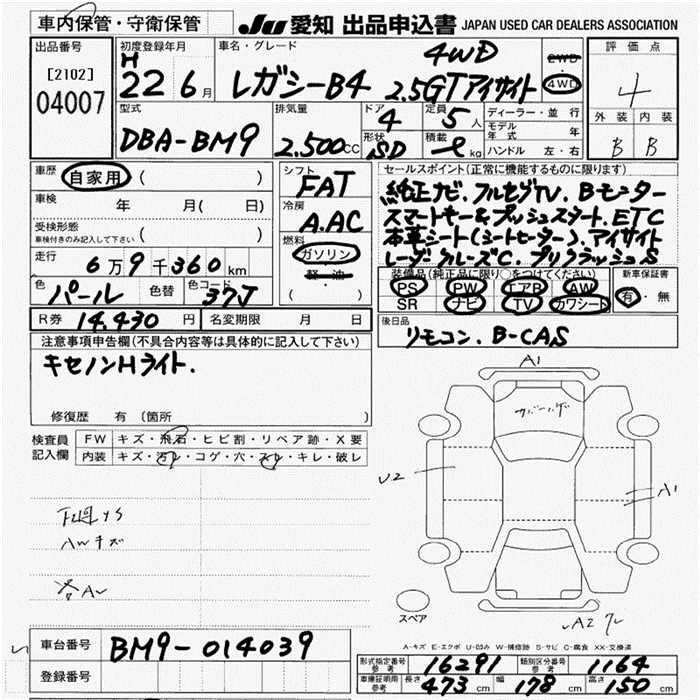 車内保管・守衛保管
JU 愛知 出品申込書 JAPAN USED CAR DEALERS ASSOCIATION
出品番号
[2102]
04007
初度登録年月
H
22 6月
車名・グレード
4WD
レガシーB4 2.5GTアイサイト
2WD
・
4WD
評価点
4
外装 内装
B B
型式
DBA-BM9
排気量
2.500cc
ドア
4
形状
SD
定員
5人
積載
kg
ディーラー・並行
モデル年式 年
ハンドル 左・右
車歴
自家用 ( )
車検
年 月( 日)
受検形態
車検付きのみ記入して下さい ( )
走行
6万9千360km
色
パール
色替
色コード
37J
R券 14.430円
名変期限 月 日
シフト
FAT
冷房
A.AC
燃料
ガソリン
軽・油
( )
セールスポイント(正常に機能するものに限ります)
純正ナビ.フルセグTV.Bモニター
スマートキー&プッシュスタート.ETC
本革シート(シートヒーター).アイサイト
レーダークルーズC.プリクラッシュS
装備品(純正品に限り○をつけてください)
PS PW エアB AW
SR ナビ TV カワシート
新車保証書
有・無
後日品
リモコン.B-CAS
注意事項申告欄(不具合内容等は具体的に記入して下さい)
キセノンHライト.
修復歴 有(箇所 )
検査員記入欄
FW キズ・飛石・ヒビ割・リペア跡・X要
内装 キズ・汚レ・コゲ・穴・スレ・キレ・破レ
AWキズ
A1
U2
A1
A2
スペア
A-キズ E-エクボ U-凹み W-補修跡 S-サビ C-腐食 XX-交換済
車台番号 BM9-014039
登録番号
形式指定番号 参考 16291
類別区分番号 参考 1164
車庫証明用 参考 長さ 473cm 幅 178cm 高さ 150cm